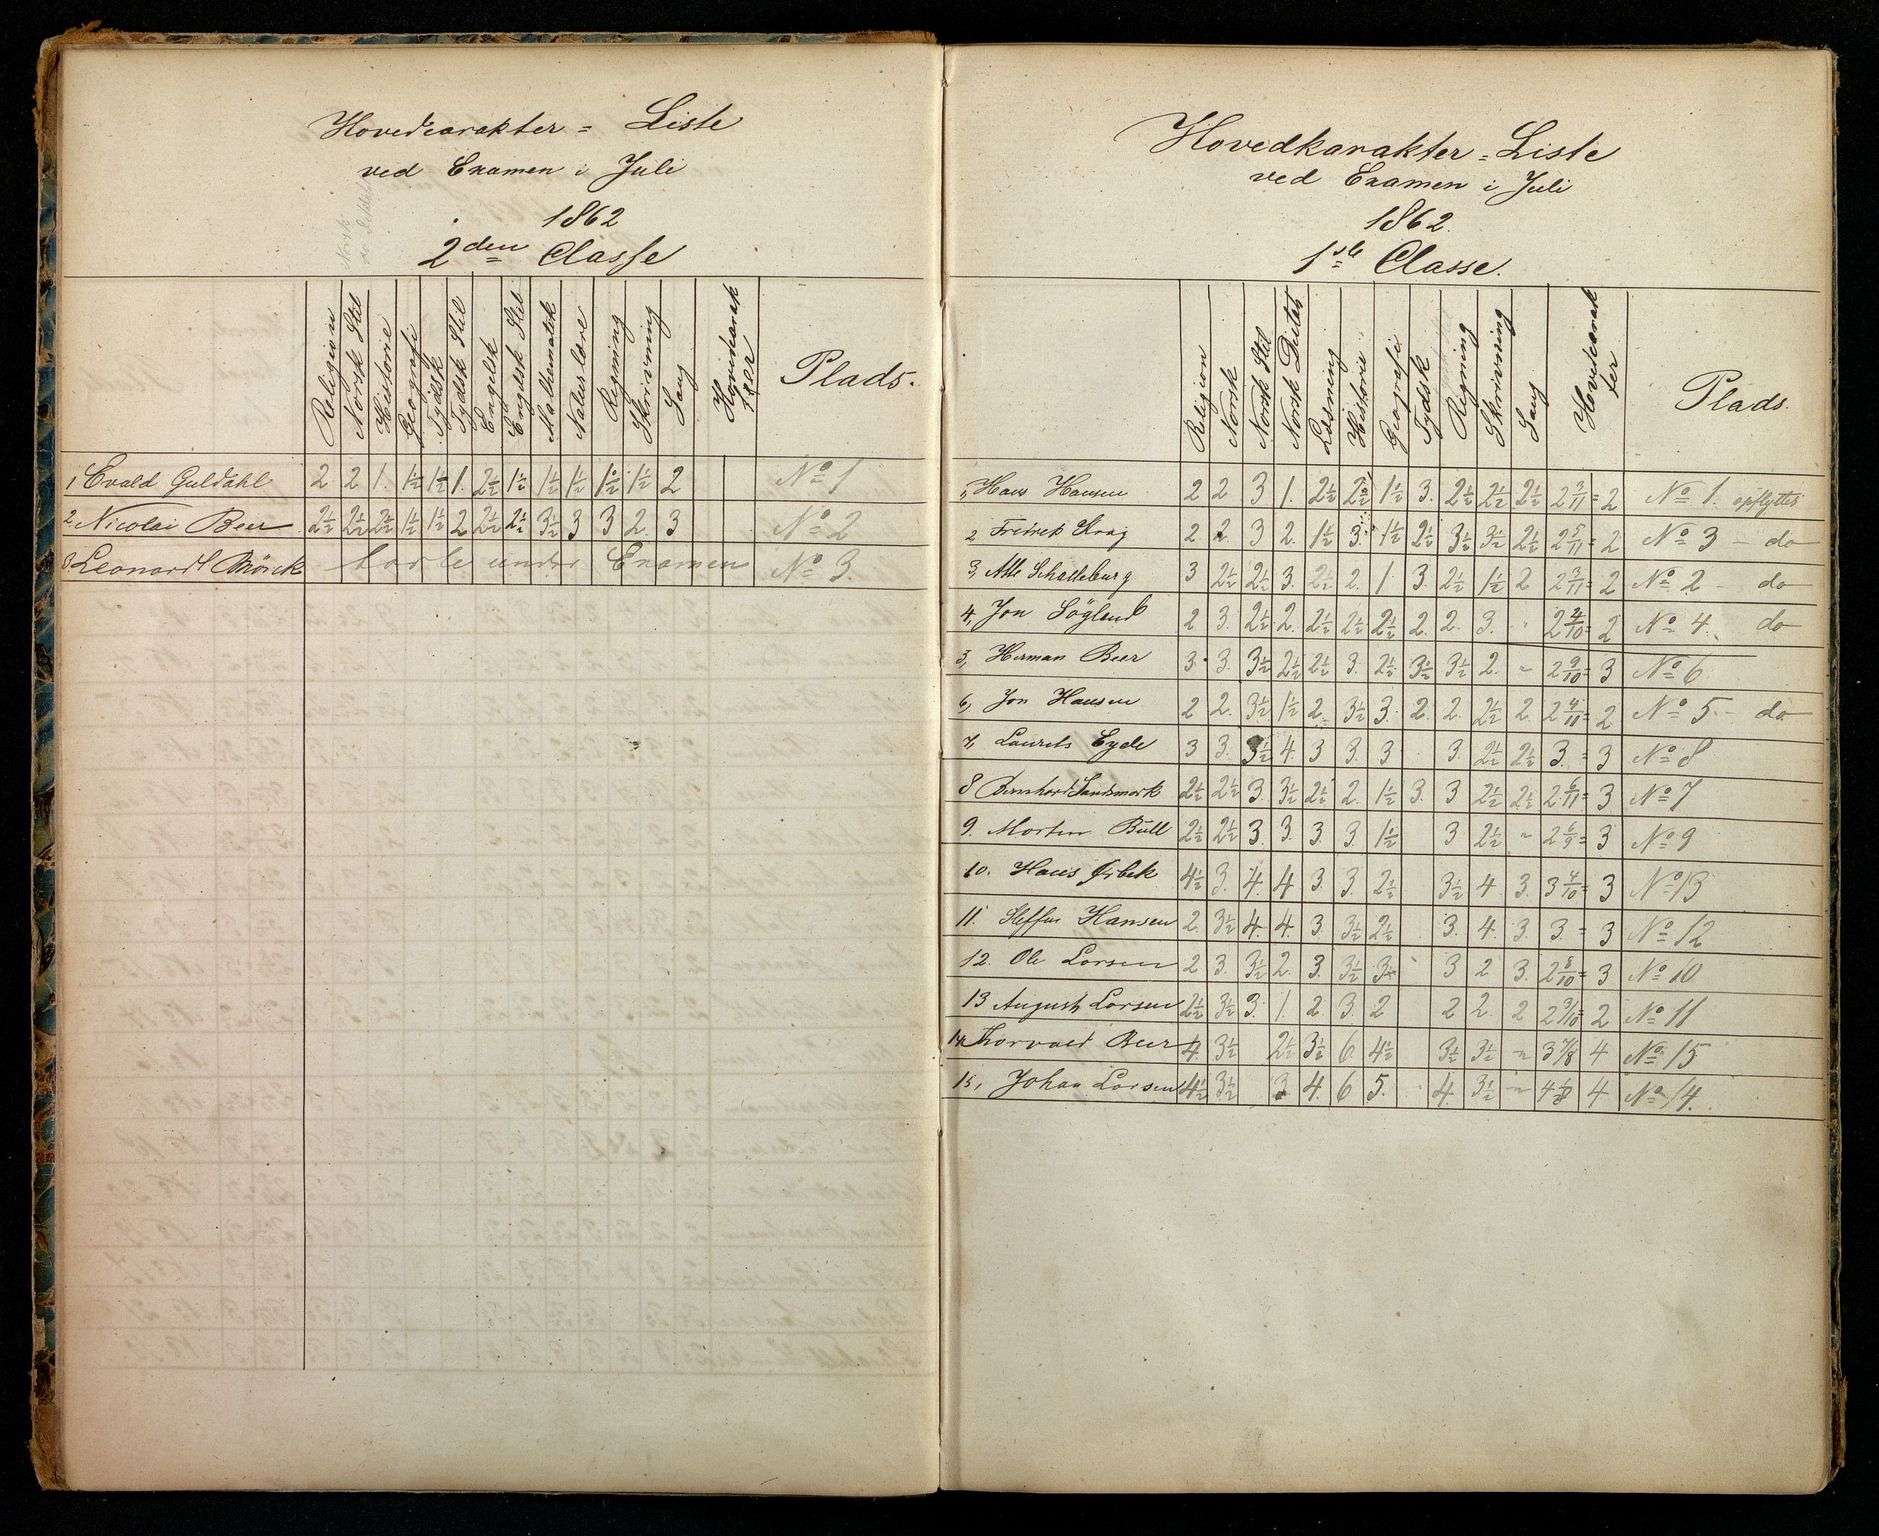 Hovedcarakter = Liste
ved Examen i Juli
1862
2den Classe
Religion Norsk Stil Historie Geografi Tydsk Tydsk Stil Engelsk Engelsk Stil Mathematik Naturlære Regning Skrivning Sang Plads.
1, Evald Guldahl 2 2 1. 1½ 1½ 1. 2½ 1½ 1½ 1½ 1½ 1½ 2 No 1
2. Nicolai Beer 2½ 2½ 2½ 1½ 1½ 2 2½ 2½ 3½ 3 3 2. 3 No 2
3 Leonard Mörck borte under Examen No 3.
Hovedkarakter = Liste
ved Examen i Juli
1862.
1ste Classe.
Religion Norsk Norsk Stil Norsk Diktat Læsning Historie Geografi Tydsk Regning Skrivning Sang Hovedcarakter Plads.
1, Hans Hansen 2 2 3 1. 2½ 2½ 1½ 3. 2½ 2½ 2½ 2 3/11 = 2 No 1. opflyttes
2 Fredrek Krag 2 2. 3 2. 1½ 3. 1½ 2½ 3½ 3½ 2½ 2 5/11 = 2 No 3 — do
3, Atle Schalleburg 3 2½ 2½ 3. 2½ 2. 1 3. 2½ 1½ 2 2 3/11 = 2 No 2 — do
4, Jon 2 3. 2½ 2. 2½ 2½ 2½ 2. 2. 3. " 2 4/10 = 2 No 4. do
3, Herman Beer 3. 3. 3½ 2½ 2½ 3. 2½ 3½ 3½ 2. " 2 9/10 = 3 No 6
6, Jon Hansen 2 2. 3½ 1½ 2. 3½ 3. 2. 2. 2½ 2. 2 4/11 = 2 No 5. — do
7, Laurets Eyde 3 3. 3½ 4. 3 3. 3 3. 2½ 2½ 3. = 3 No 8
8 Bernhard Sandsmark 2½ 2½ 3. 3½ 2½ 2. 1½ 3. 3 2½ 2½ 2 6/11 = 3 No 7
9. Morten Bull 2½ 2½ 3. 3. 3 3. 1½ 3 2½ " 2 6/9 = 3 No 9
10. Hans Ørbek 4½ 3. 4. 4 3. 3. 2½ 3½ 4. 3. 3 4/10 = 3 No 13
11. Steffen Hansen 2. 3½ 4. 4. 3 3½ 2½ 3. 4. 3. 3. = 3 No 12
12. Ole Larsen 2 3. 3½ 2. 3. 3½ 3. 3 2 3. 2 8/10 = 3 No 10
13 August Larsen 2½ 3½ 3. 1. 2. 3. 2 2 2. 2 2 3/10 = 2 No 11
14 Thorvald Beer 4. 3½ 2½ 3½ 6 4½ 3½ 3½ " 3 7/8 4 No 15
15, Johan Larsen 4½ 3½ 3 4. 6 5. 4. 3½ " 4 1/8 4 No 14.